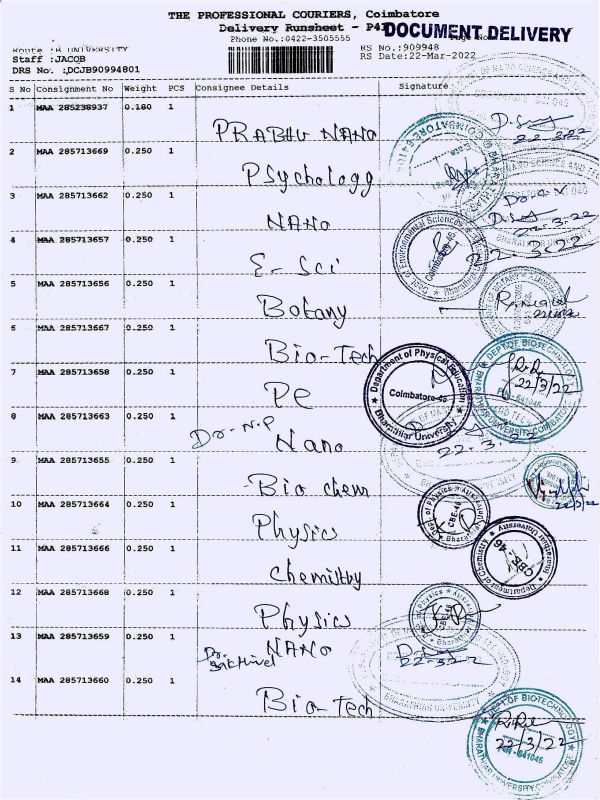 THE PROFESSIONAL COURIERS, Coimbatore
Delivery Runsheet - P43
DOCUMENT DELIVERY
Phone No.:0422-3505555
RS No.:909948
Route :B UNIVERSITY
Staff :JACOB
RS Date:22-Mar-2022
DRS No. :DCJB90994801
S No Consignment No Weight PCS Consignee Details Signature
1 MAA 285238937 0.180 1
PRABHU NANO
22-3-22
2 MAA 285713669 0.250 1
Psychology
3 MAA 285713662 0.250 1
NANO
22-3-22
4 MAA 285713657 0.250 1
22-3-22
E-Sci
5 MAA 283713656 0.250 1
Botany
6 MAA 285713667 0.250 1
Bio-Tech
DEPT.OF BIOTECHNOLOGY
BHARATHIAR UNIVERSITY, COIMBATORE
22/3/22
7 MAA 283713658 0.250 1
PE
Department of Physical Education
Coimbatore-46
Bharathiar University
8 MAA 285713663 0.250 1
Dr-N.P
Nano
22-3-22
9 MAA 285713655 0.250 1
Bio chem
10 MAA 285713664 0.250 1
Physics
Dept of Physics
CBE-46
11 MAA 285713666 0.250 1
Chemistry
Department of Chemistry
Bharathiar University
CBE-46
12 MAA 285713668 0.250 1
Physics
13 MAA 285713659 0.250 1
Dr.
Sakthivel
NANO
22-3-22
14 MAA 285713660 0.250 1
Bio-Tech
DEPT.OF BIOTECHNOLOGY
22/3/22
PIN-641046
BHARATHIAR UNIVERSITY, COIMBATORE